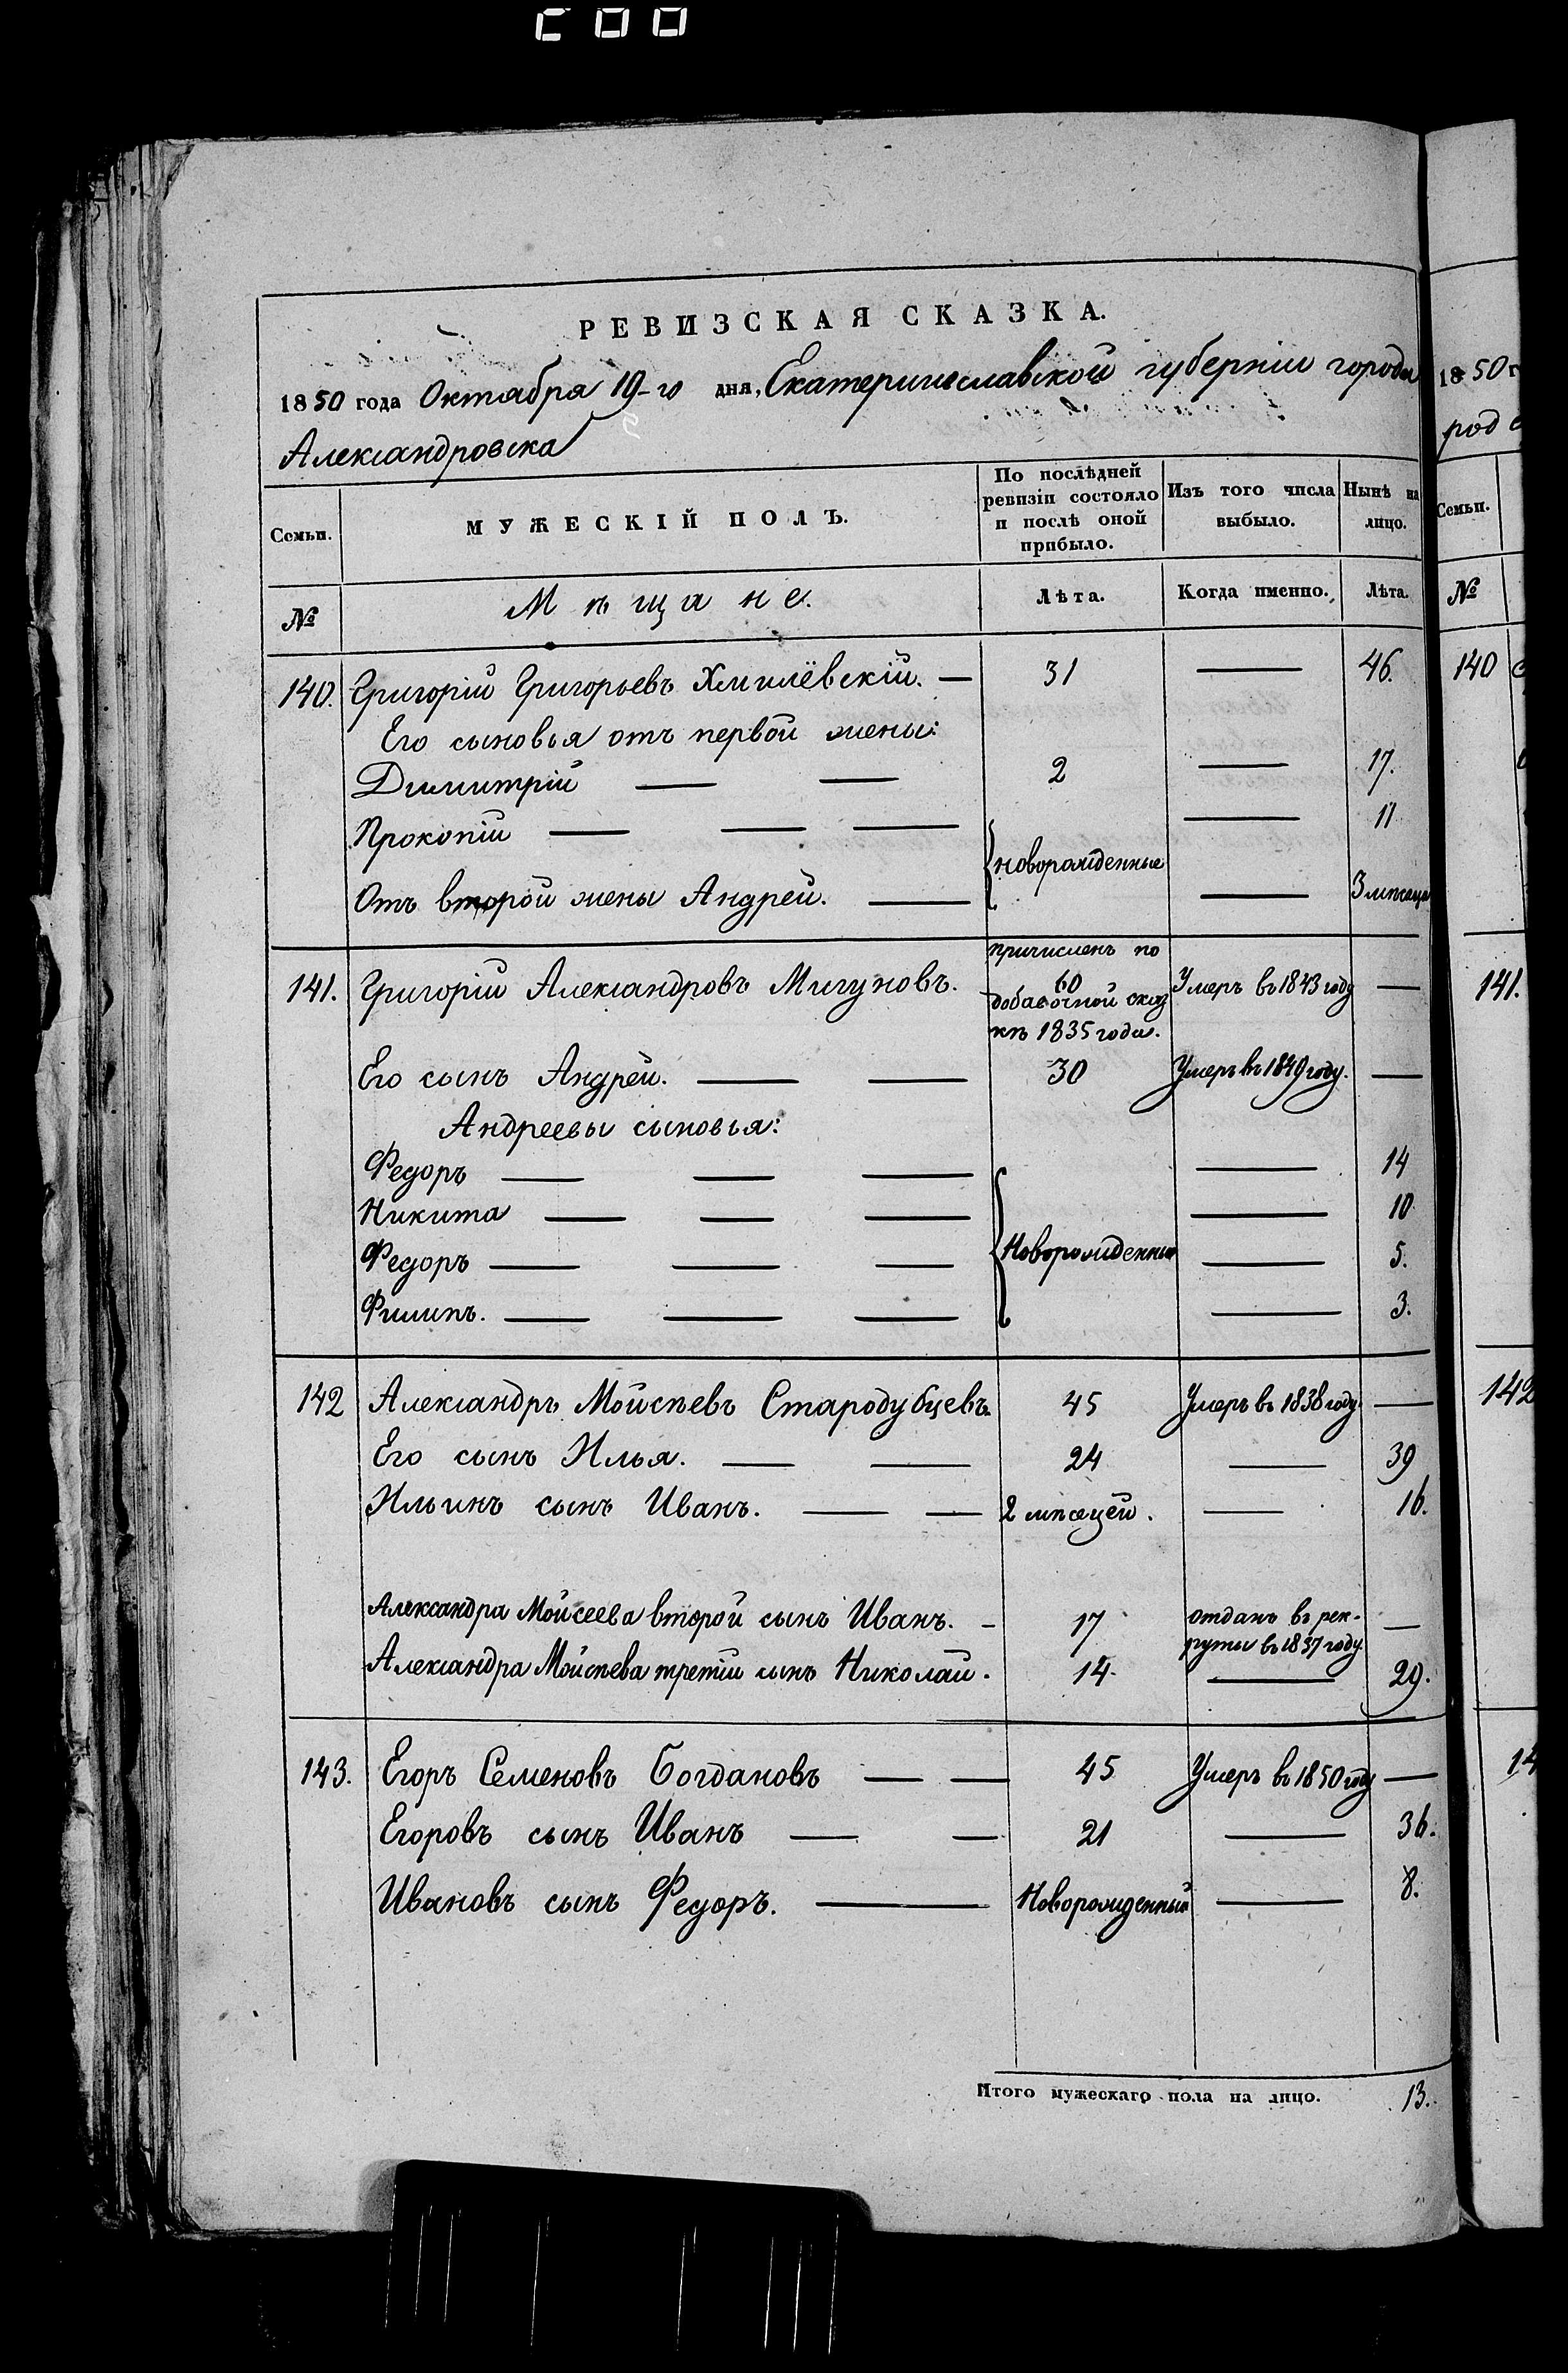 РЕВИЗСКАЯ СКАЗКА.
1850 года Октября 19-го дня, Екатеринославской губернiи города
Александровска
Семьи. МУЖЕСКIЙ ПОЛЪ. По послѣдней ревизiи состояло и послѣ оной прибыло. Изъ того числа выбыло. Нынѣ на лицо.
№ Мѣщане. Лѣта. Когда именно. Лѣта.
140. Григорiй Григорьевъ Хмилёвскiй. — 31 — 46.
Его сыновья отъ первой жены:
Димитрiй — — 2 — 17.
Прокопiй — — — новорожденные — 11
Отъ второй жены Андрей. — — 3 мѣсяца
141. Григорiй Александровъ Мигуновъ. причисленъ по 60 добавочной сказкѣ 1835 года. Умеръ въ 1843 году —
Его сынъ Андрей. — — 30 Умеръ въ 1849 году. —
Андреевы сыновья:
Федоръ — — — — 14
Никита — — — — 10
Федоръ — — — Новорожденные — 5.
Филипъ. — — — — 3.
142 Александръ Мойсѣевъ Стародубцевъ. 45 Умеръ въ 1838 году —
Его сынъ Илья. — — 24 — 39
Ильинъ сынъ Иванъ. — — 2 мѣсяцей. — 16.
Александра Мойсеева второй сынъ Иванъ. - 17 отданъ въ рекруты въ 1837 году. —
Александра Мойсѣева третiй сынъ Николай. 14. — 29.
143. Егоръ Семеновъ Богдановъ — — 45 Умеръ въ 1850 году —
Егоровъ сынъ Иванъ — — 21 — 36.
Ивановъ сынъ Федоръ. — Новорожденный — 8.
Итого мужескаго пола на лицо. 13.
1850 г
род
Семьи.
№
140
141.
142
14